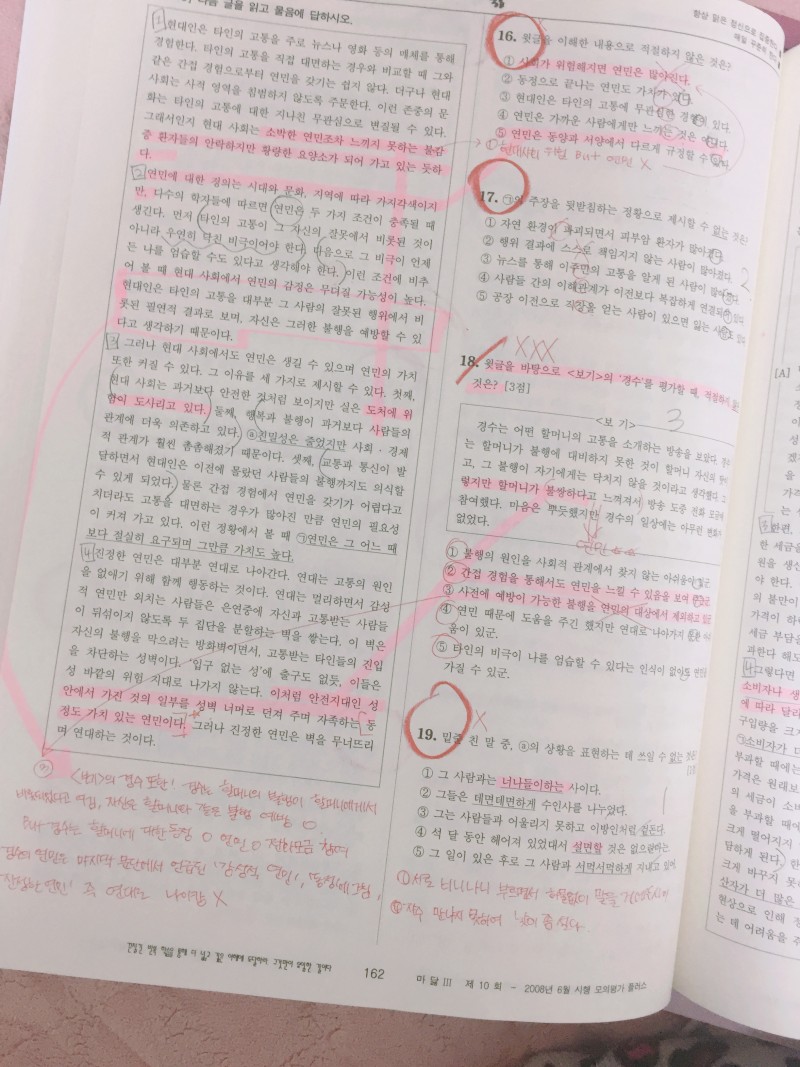 다음 글을 읽고 물음에 답하시오.
1 현대인은 타인의 고통을 주로 뉴스나 영화 등의 매체를 통해
경험한다. 타인의 고통을 직접 대면하는 경우와 비교할 때 그와
같은 간접 경험으로부터 연민을 갖기는 쉽지 않다. 더구나 현대
사회는 사적 영역을 침범하지 않도록 주문한다. 이런 존중의 문
화는 타인의 고통에 대한 지나친 무관심으로 변질될 수 있다.
그래서인지 현대 사회는 소박한 연민조차 느끼지 못하는 불감
증 환자들의 안락하지만 황량한 요양소가 되어 가고 있는 듯하
다.
2 연민에 대한 정의는 시대와 문화, 지역에 따라 가지각색이지
만, 다수의 학자들에 따르면 연민은 두 가지 조건이 충족될 때
생긴다. 먼저 타인의 고통이 그 자신의 잘못에서 비롯된 것이
아니라 우연히 닥친 비극이어야 한다. 다음으로 그 비극이 언제
든 나를 엄습할 수도 있다고 생각해야 한다. 이런 조건에 비추
어 볼 때 현대 사회에서 연민의 감정은 무뎌질 가능성이 높다.
현대인은 타인의 고통을 대부분 그 사람의 잘못된 행위에서 비
롯된 필연적 결과로 보며, 자신은 그러한 불행을 예방할 수 있
다고 생각하기 때문이다.
3 그러나 현대 사회에서도 연민은 생길 수 있으며 연민의 가치
또한 커질 수 있다. 그 이유를 세 가지로 제시할 수 있다. 첫째,
현대 사회는 과거보다 안전한 것처럼 보이지만 실은 도처에 위
험이 도사리고 있다. 둘째, 행복과 불행이 과거보다 사람들의
관계에 더욱 의존하고 있다. ⓐ친밀성은 줄었지만 사회·경제
적 관계가 훨씬 촘촘해졌기 때문이다. 셋째, 교통과 통신이 발
달하면서 현대인은 이전에 몰랐던 사람들의 불행까지도 의식할
수 있게 되었다. 물론 간접 경험에서 연민을 갖기가 어렵다고
치더라도 고통을 대면하는 경우가 많아진 만큼 연민의 필요성
이 커져 가고 있다. 이런 정황에서 볼 때 ㉠연민은 그 어느 때
보다 절실히 요구되며 그만큼 가치도 높다.
4 진정한 연민은 대부분 연대로 나아간다. 연대는 고통의 원인
을 없애기 위해 함께 행동하는 것이다. 연대는 멀리하면서 감성
적 연민만 외치는 사람들은 은연중에 자신과 고통받는 사람들
이 뒤섞이지 않도록 두 집단을 분할하는 벽을 쌓는다. 이 벽은
자신의 불행을 막으려는 방화벽이면서, 고통받는 타인들의 진입
을 차단하는 성벽이다. '입구 없는 성'에 출구도 없듯, 이들은
성 바깥의 위험 지대로 나가지 않는다. 이처럼 안전지대인 성
안에서 가진 것의 일부를 성벽 너머로 던져 주며 자족하는 동
정도 가치 있는 연민이다. 그러나 진정한 연민은 벽을 무너뜨리
며 연대하는 것이다.
162
항상 맑은 정신으로
16. 윗글을 이해한 내용으로 적절하지 않은 것은?
① 사회가 위험해지면 연민은 많아진다.
② 동정으로 끝나는 연민도 가치가 있다.
③ 현대인은 타인의 고통에 무관심한 경향이 있다.
④ 연민은 가까운 사람에게만 느끼는 것은 아니다.
⑤ 연민은 동양과 서양에서 다르게 규정할 수 있다.
17. ㉠의 주장을 뒷받침하는 정황으로 제시할 수 없는 것은?
① 자연 환경이 파괴되면서 피부암 환자가 많아졌다.
② 행위 결과에 스스로 책임지지 않는 사람이 많아졌다.
③ 뉴스를 통해 이주민의 고통을 알게 된 사람이 많아졌다.
④ 사람들 간의 이해관계가 이전보다 복잡하게 연결되어 있다.
⑤ 공장 이전으로 직장을 얻는 사람이 있으면 잃는 사람도 있다.
2
XXX
18. 윗글을 바탕으로 <보기>의 '경수'를 평가할 때, 적절하지 않은
것은? [3점]
<보 기>
3
경수는 어떤 할머니의 고통을 소개하는 방송을 보았다. 경수
는 할머니가 불행에 대비하지 못한 것이 할머니 자신의
고, 그 불행이 자기에게는 닥치지 않을 것이라고 생각했다. 그
렇지만 할머니가 불쌍하다고 느껴져서 방송 도중 전화 모금에
참여했다. 마음은 뿌듯했지만 경수의 일상에는 아무런 변화가
없었다.
① 불행의 원인을 사회적 관계에서 찾지 않는 아쉬움이 있군.
② 간접 경험을 통해서도 연민을 느낄 수 있음을 보여 주는군.
③ 사전에 예방이 가능한 불행을 연민의 대상에서 제외하고 있군.
④ 연민 때문에 도움을 주긴 했지만 연대로 나아가지 못한 아쉬
움이 있군.
⑤ 타인의 비극이 나를 엄습할 수 있다는 인식이 없어도 연민을
가질 수 있군.
19. 밑줄 친 말 중, ⓐ의 상황을 표현하는 데 쓰일 수 없는 것은?
① 그 사람과는 너나들이하는 사이다.
② 그들은 데면데면하게 수인사를 나누었다.
③ 그는 사람들과 어울리지 못하고 이방인처럼 겉돈다.
④ 석 달 동안 헤어져 있었대서 설면할 것은 없으련마는
⑤ 그 일이 있은 후로 그 사람과 서먹서먹하게 지내고 있어.
마닳III 제 10 회 - 2008년 6월 시행 모의평가 플러스